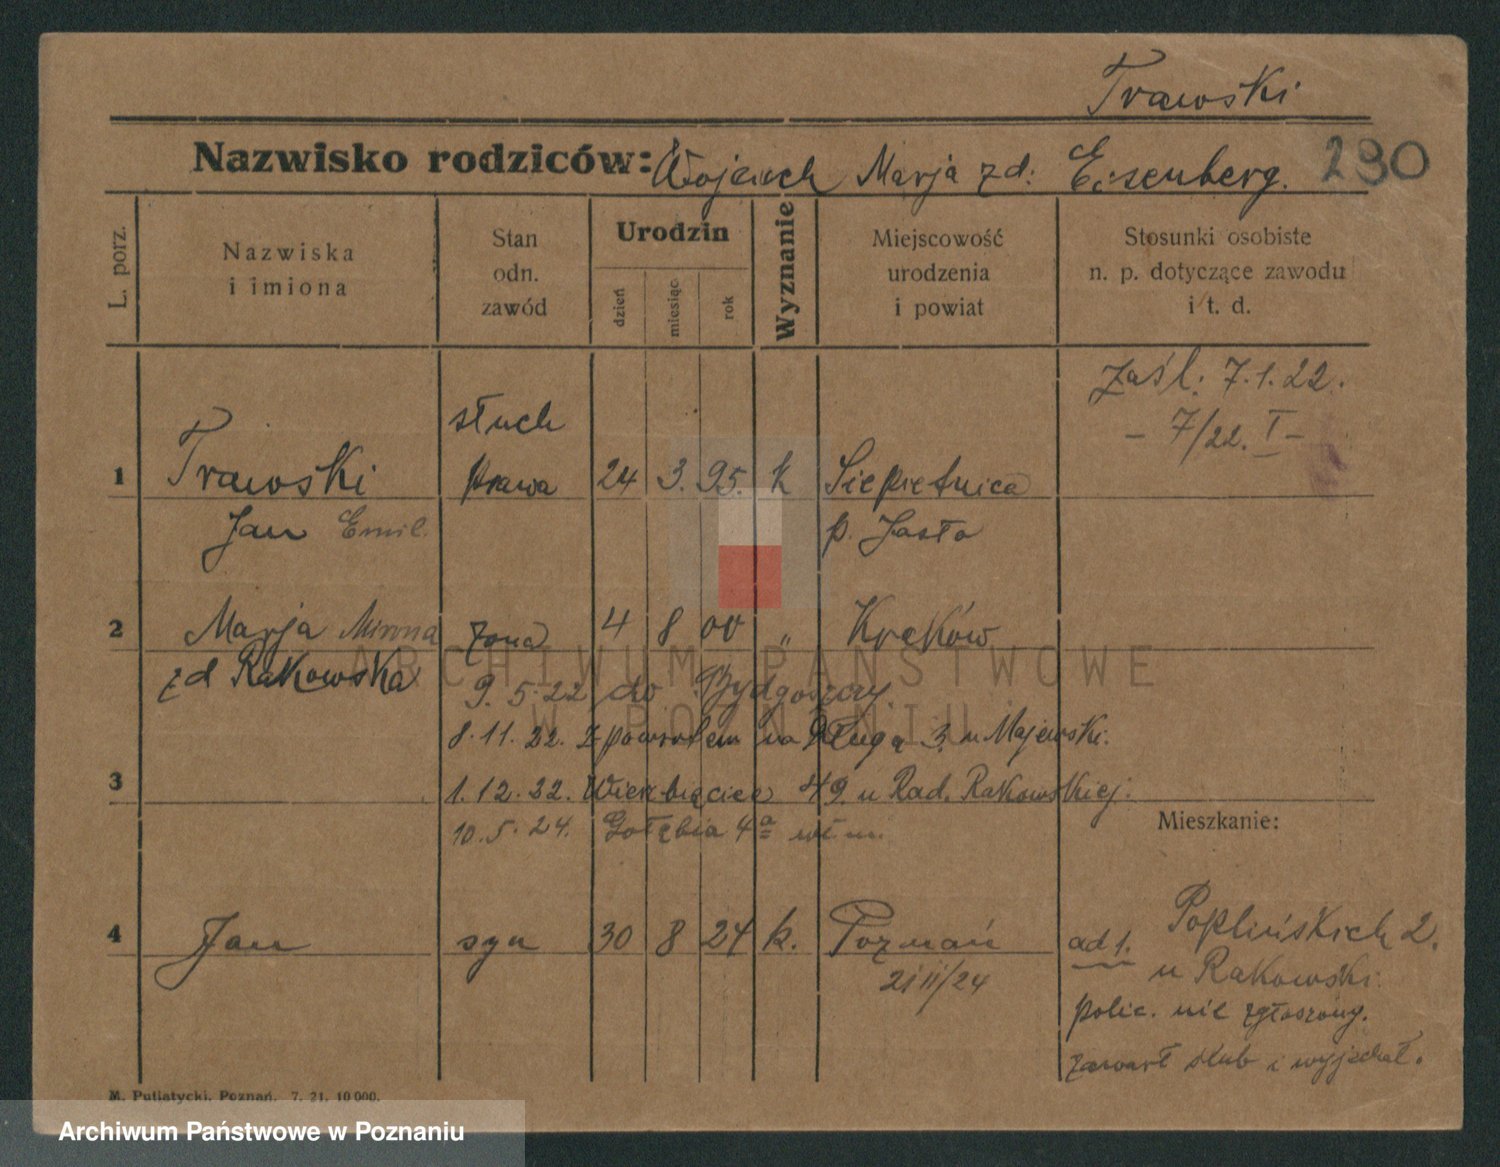 Trawski
Nazwisko rodziców: Wojciech Marja zd: Eisenberg. 290
L. porz.
Nazwiska i imiona
Stan odn. zawód
Urodzin
dzień miesiąc rok
Wyznanie
Miejscowość urodzenia i powiat
Stosunki osobiste n. p. dotyczące zawodu i t. d.
zaśl: 7.1.22.
– 7/22. I –
słuch
1 Trawski prawa 24 3. 95. k Siepietnica
Jan Emil. p. Jasło
2 Marja Mirona żona 4 8 00 „ Kraków
zd Rakowska
9. 5. 22 do Bydgoszczy.
8. 11. 22. z powrotem na Długą 3. u Majewski.
3 1. 12. 22. Wierzbięcice 49. u Rad. Rakowskiej.
10. 5. 24. Gołębia 4a
Mieszkanie:
4 Jan syn 30 8 24 k. Poznań ad 1. Poplińskich 2.
u Rakowski.
/24
polic. nie zgłoszony.
zawarł ślub i wyjechał.
M. Putiatycki, Poznań, 7. 21. 10 000.
ARCHIWUM PAŃSTWOWE
W POZNANIU
Archiwum Państwowe w Poznaniu